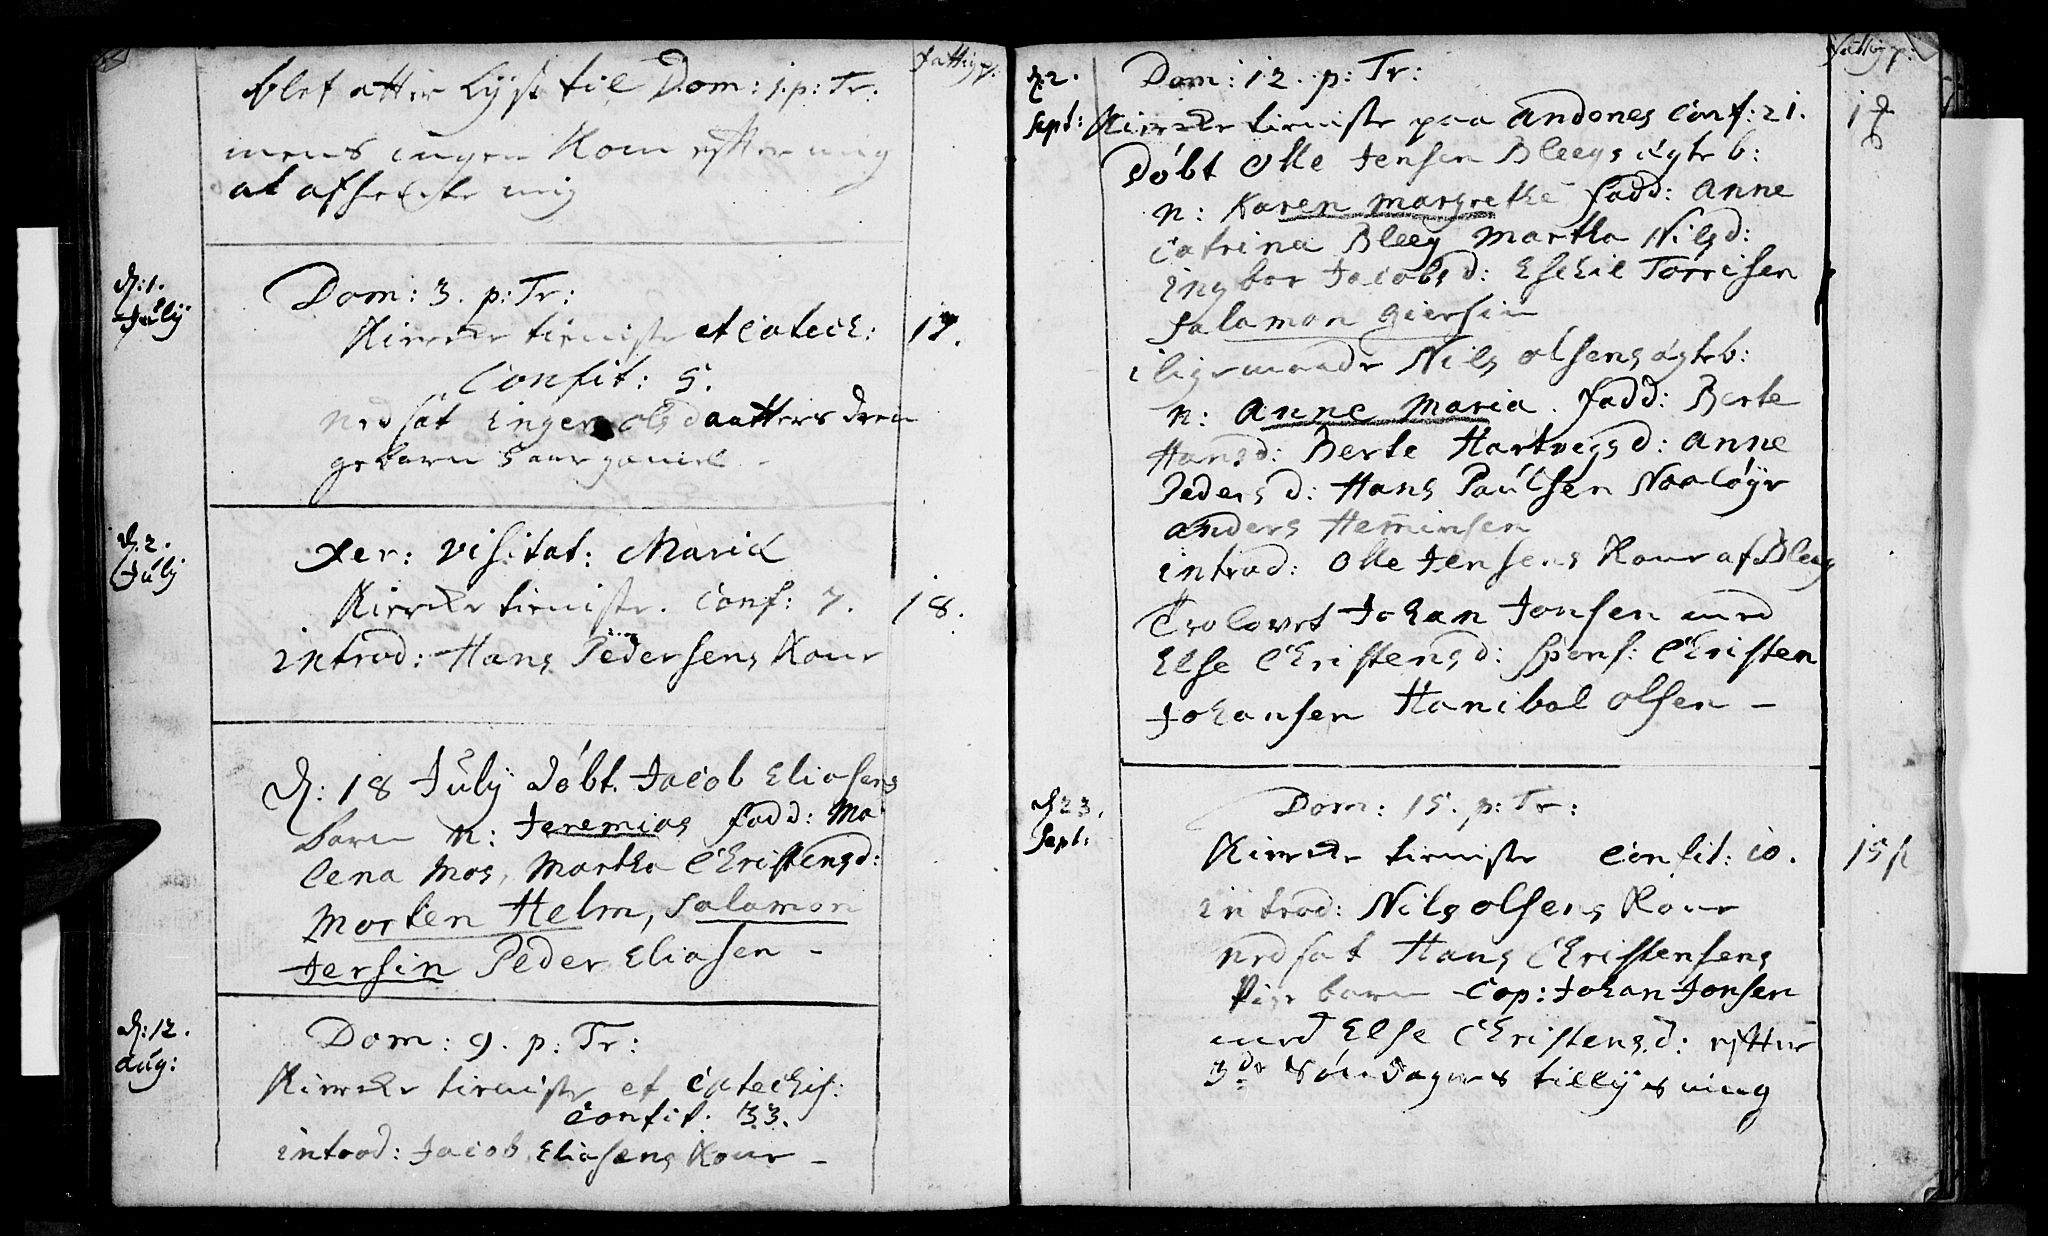 fattigp:
blef atter Lyst til Dom: 1. p: Tr.
mens ingen Kom efter mig
at afhente mig
d: 1.
July
Dom: 3. p: Tr:
Kircke tieniste et catech: 17.
Confit: 5.
nedsat Inger olsdaatters dren
gebarn 5 aar gamel -
d. 2.
July
Fer: visitat: Mariæ
Kircke tieniste. Conf: 7. 18.
introd: Hans Pedersens Kone
d: 18 July döbt Jacob Eliasens
barn n: Jeremias fadd: Ma
lena Mos, Martha Christensd:
Morten Helm, Salamon
Jersin Peder Eliasen -
d: 12.
aug:
Dom: 9. p: Tr:
Kircke tieniste et catechis:
Confit: 33.
introd: Jacob Eliasens Kone -
fattigp:
d. 2.
Sept:
Dom: 12. p: Tr:
Kircke tieniste paa Andenes Conf: 21.
Döbt Olle Jensen Bleegs ægte b:
n: Karen Margrethe fadd: Anne
Catrina Bleeg Martha Nilsd:
Ingbor Jacobsd: Eschil Torrisen
Salamon Giersin
i lige maade Nils olsens ægte b:
n: Anne Maria. fadd: Berte
Hansd: Berte Hartvigsd: Anne
Pedersd: Hans Paulsen
anders Heminsen
introd: Olle Jensens Kone af Bleeg
Trolovet Johan Jonsen med
Else Christensd: spons: Christen
Johansen Hanibal olsen -
d 23.
Sept:
Dom: 15. p: Tr:
Kircke tieniste Confit: 10. 15 ſ
introd: Nils olsens Kone
nedsat Hans Christensens
Pige barn Cop: Johan Jonsen
med Else Christensd: efter
3de Söndagers tillysning